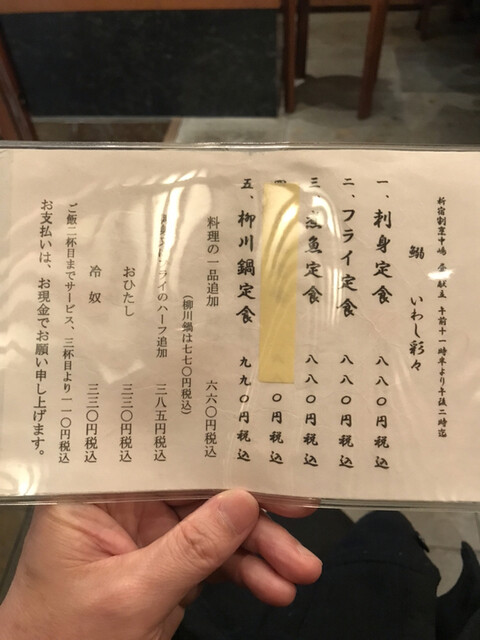 新宿割烹中嶋 昼献立 午前十一時半より午後二時迄
鰯 いわし彩々
一、刺身定食 八八〇円税込
二、フライ定食 八八〇円税込
三、魚定食 八八〇円税込
〇円税込
五、柳川鍋定食 九九〇円税込
料理の一品追加 六六〇円税込
(柳川鍋は七七〇円税込)
フライのハーフ追加 三八五円税込
おひたし 三三〇円税込
冷奴 三三〇円税込
ご飯二杯目までサービス、三杯目より一一〇円税込
お支払いは、お現金でお願い申し上げます。